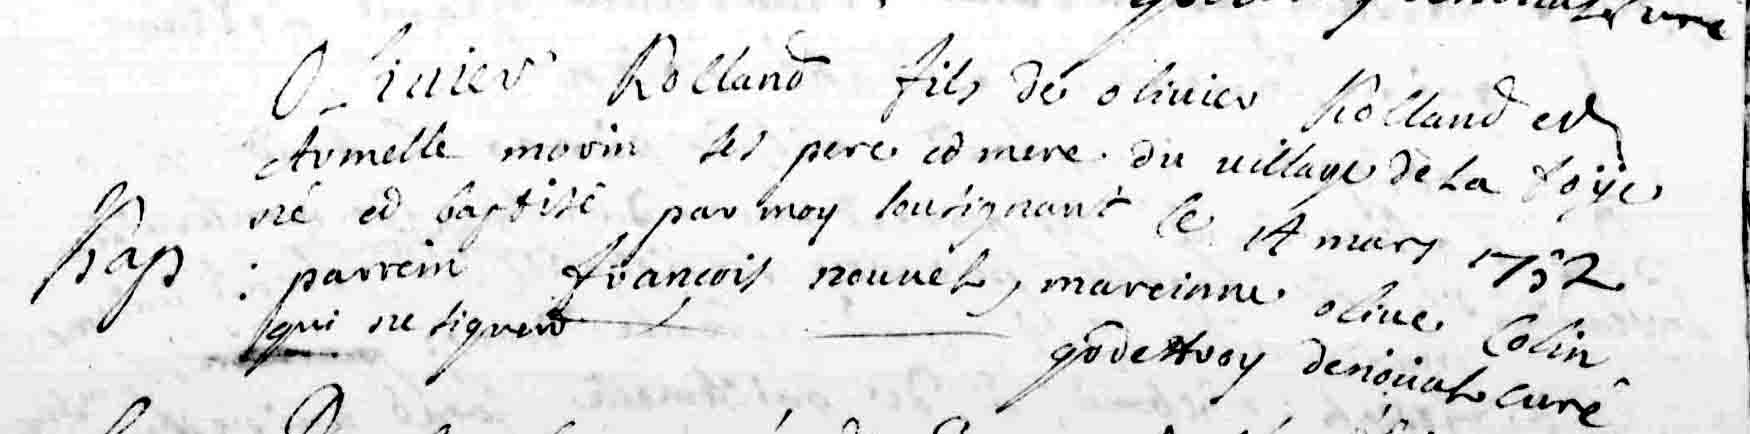 Olivier Rolland fils de olivier Rolland et
Armelle morin ses pere et mere du village de La foÿe
né et baptisé par moy soussignant le 14 mars 1752
Bap : parrein françois nouuel, mareinne olive Colin
qui ne signent
godeffroy denoual curé